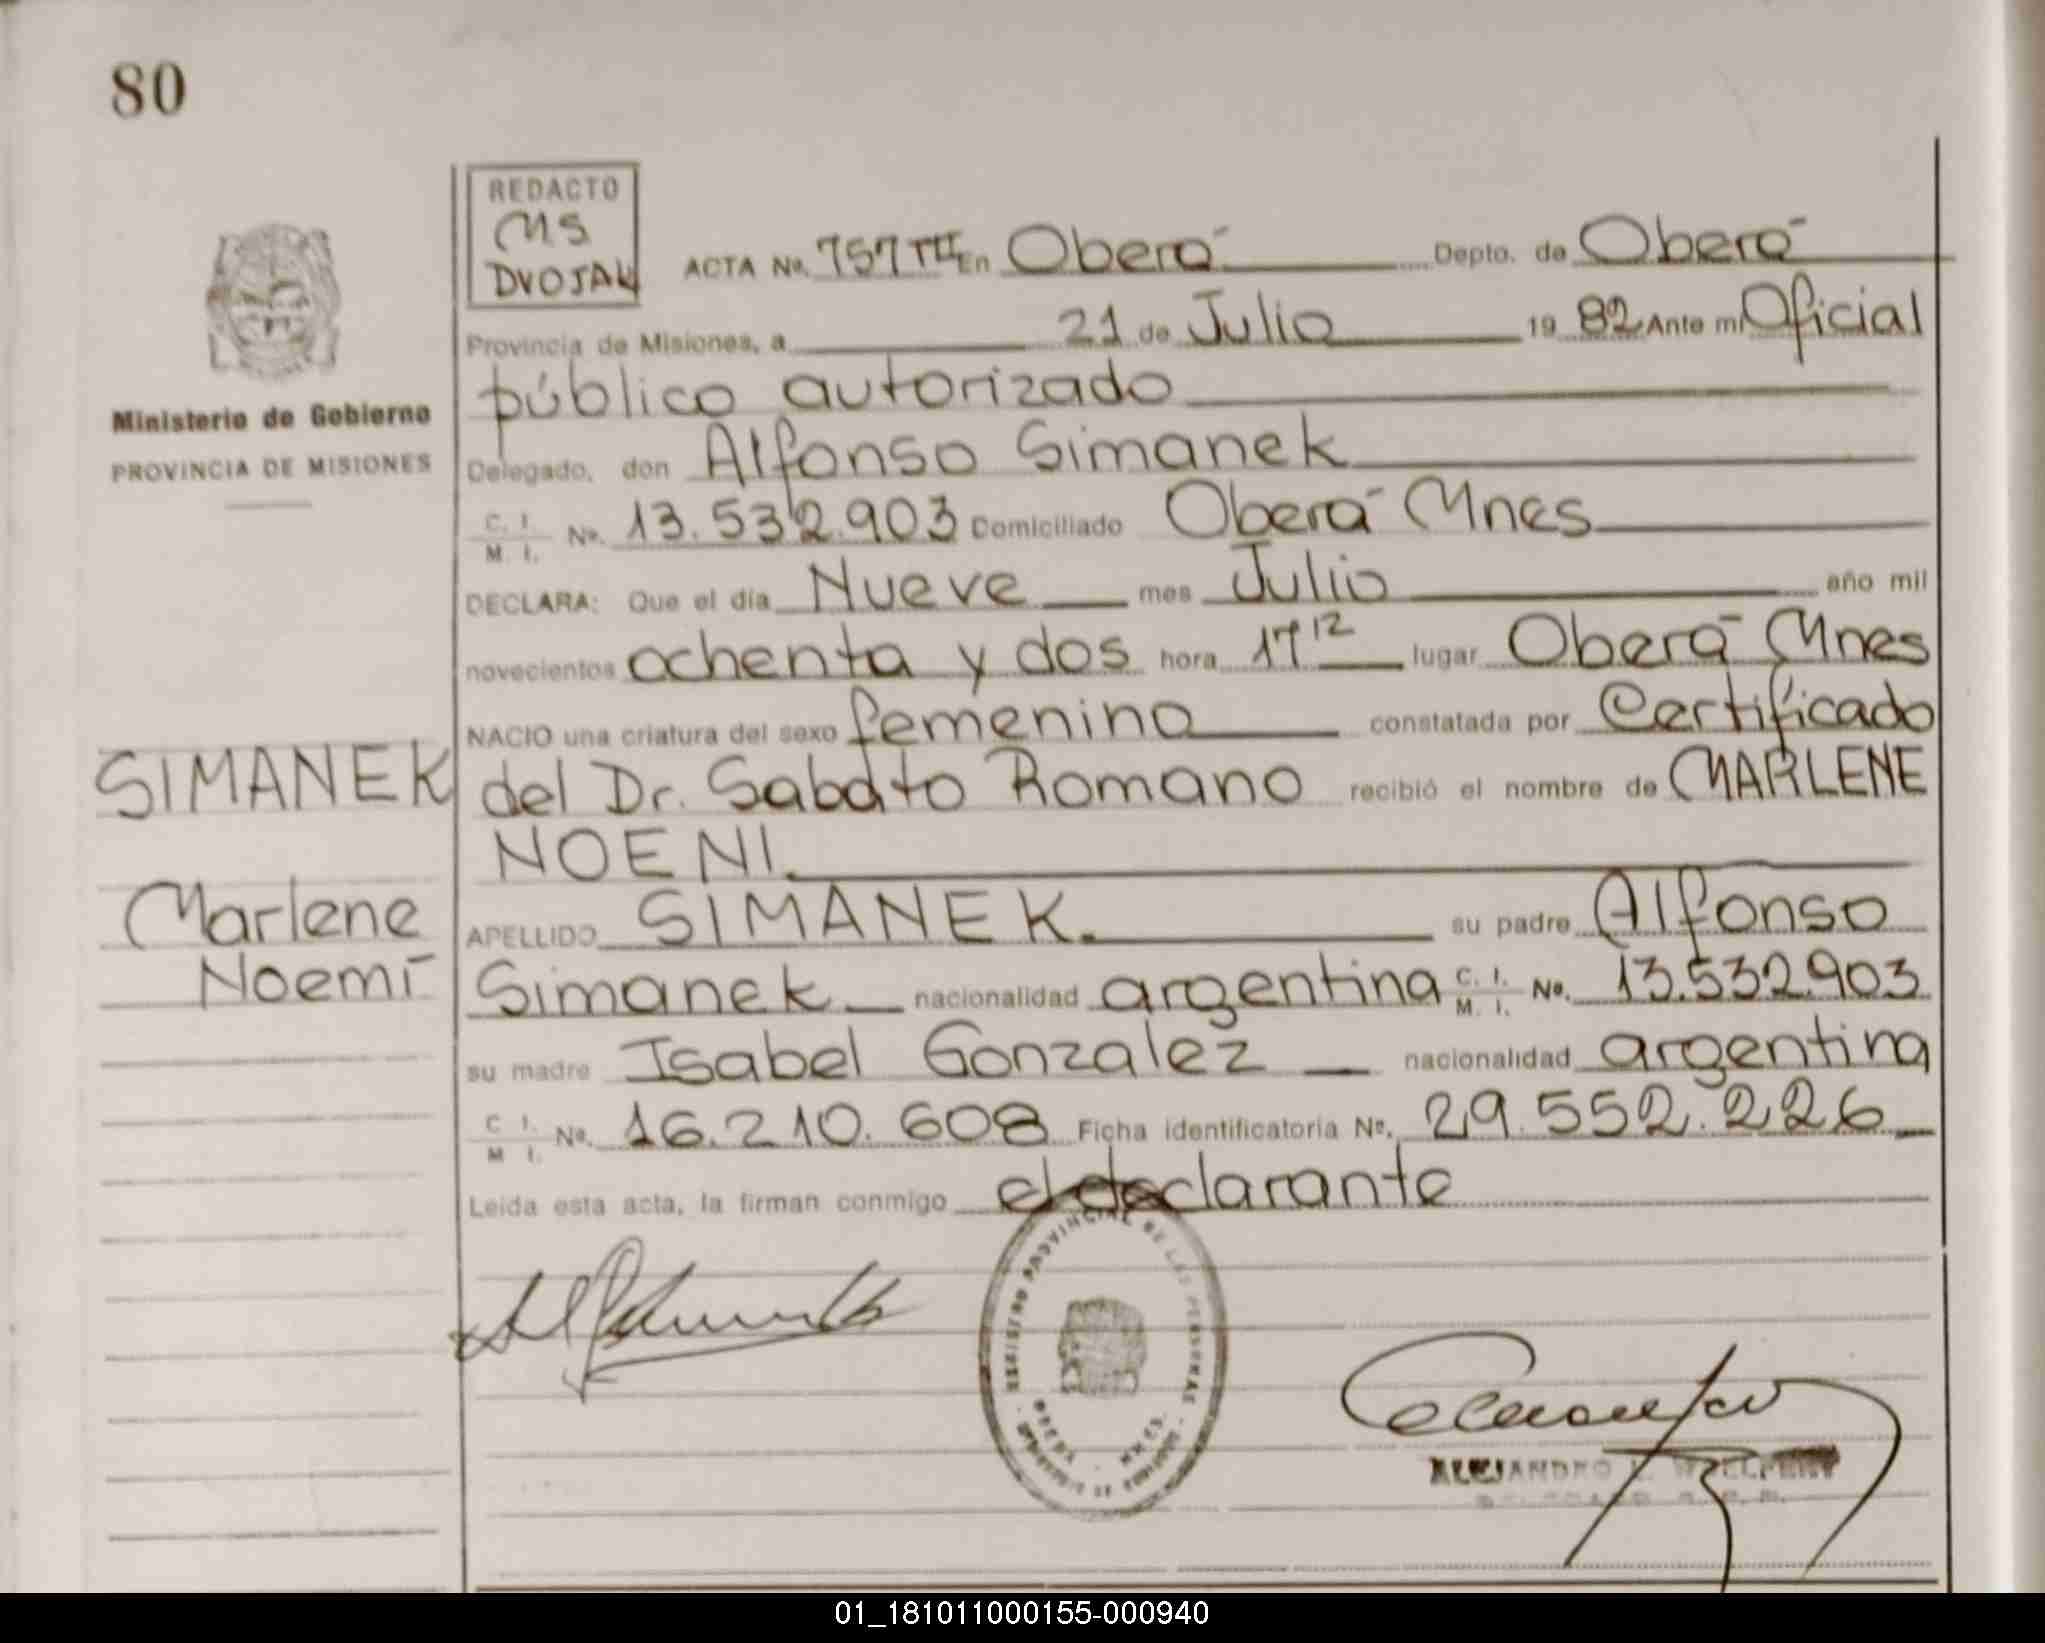 80
REDACTO
MS
DVOJAK
ACTA No. 757 TII En Oberá Depto. de Oberá
Provincia de Misiones, a 21 de Julio 19 82 Ante mi Oficial
público autorizado
Ministerio de Gobierno
PROVINCIA DE MISIONES
Delegado, don Alfonso Simanek
C. I. M. I. No. 13.532.903 Domiciliado Oberá Mnes
DECLARA: Que el día Nueve mes Julio año mil
novecientos ochenta y dos hora 17 12 lugar Oberá Mnes
NACIO una criatura del sexo femenino constatada por Certificado
SIMANEK
del Dr. Sabato Romano recibió el nombre de MARLENE
NOENI.
Marlene
Noemí
APELLIDO SIMANEK. su padre Alfonso
Simanek nacionalidad argentina C. I. M. I. No. 13.532.903
su madre Isabel Gonzalez nacionalidad argentina
C. I. M. I. No. 16.210.608 Ficha identificatoria No. 29.552.226
Leída esta acta, la firman conmigo el declarante
REGISTRO PROVINCIAL DE LAS PERSONAS
OBERA - MNES.
ALEJANDRO
01_181011000155-000940